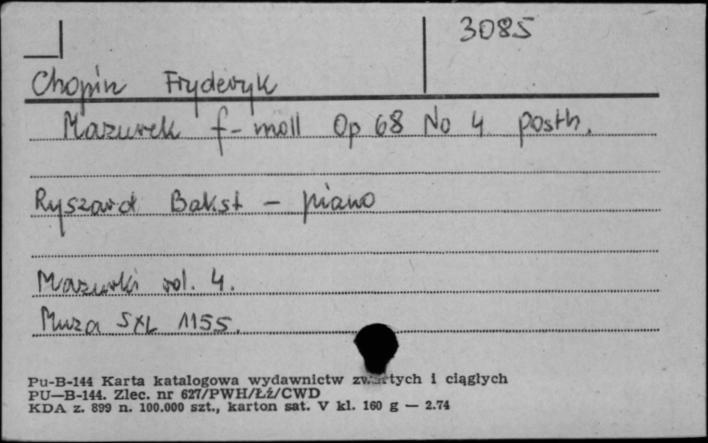 3085
Chopin Fryderyk
Mazurek f-moll Op 68 No 4 posth.
Ryszard Bakst - piano
Mazurki vol. 4.
Muza SXL 1155.
Pu-B-144 Karta katalogowa wydawnictw zwartych i ciągłych
PU—B-144. Zlec. nr 627/PWH/Łź/CWD
KDA z. 899 n. 100.000 szt., karton sat. V kl. 160 g — 2.74